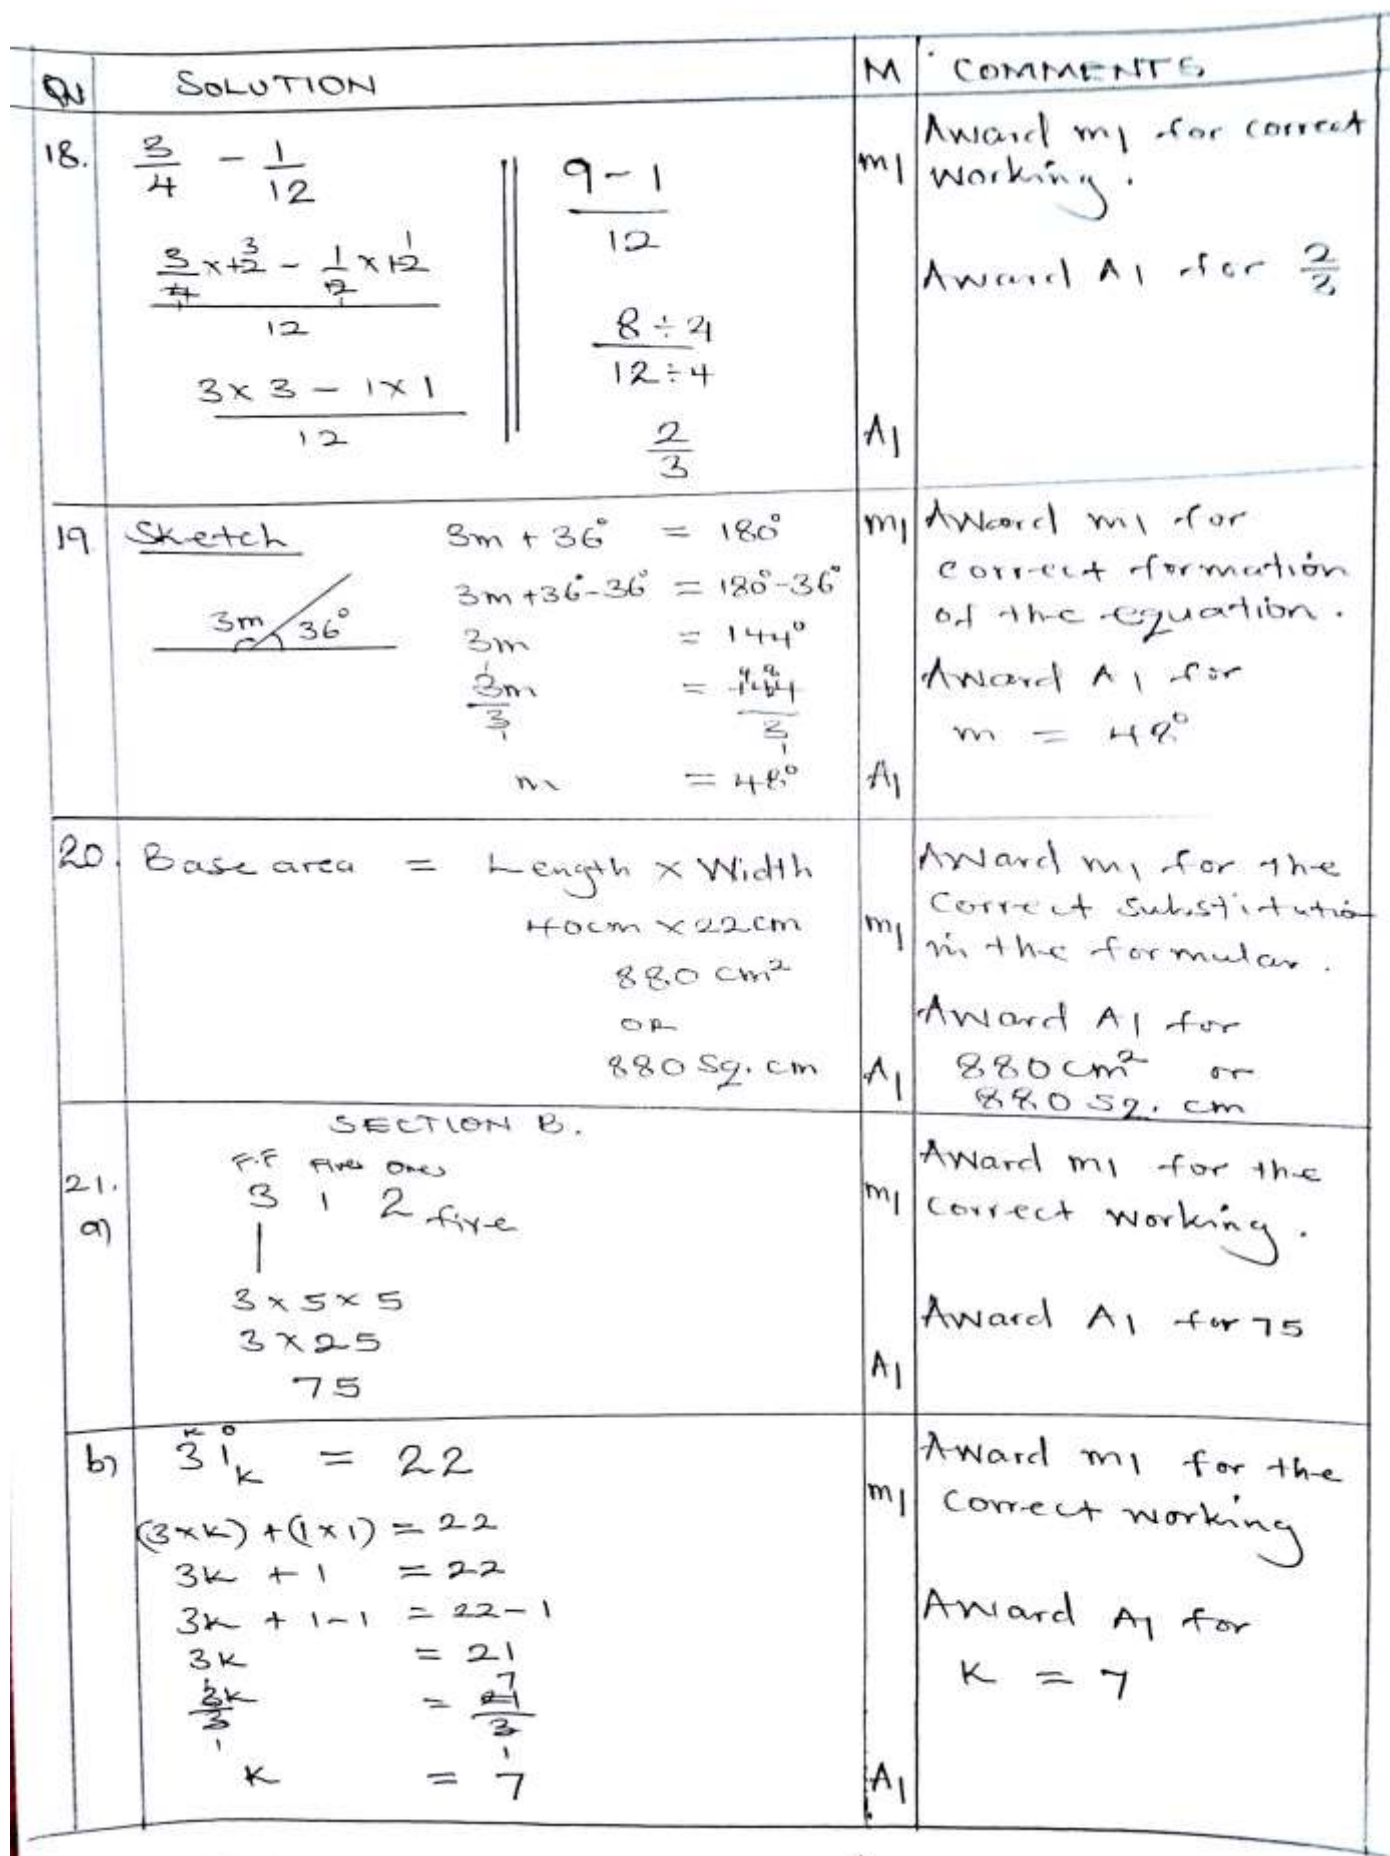 QN SOLUTION M COMMENTS
18. 3/4 - 1/12
3/4 x 12 3 - 1/12 x 12 1
12
3 x 3 - 1 x 1
12
9 - 1
12
8 ÷ 4
12 ÷ 4
2
3
M1
A1
Award M1 for correct
working.
Award A1 for 2/3
19 Sketch
3m 36°
3m + 36° = 180°
3m + 36° - 36° = 180° - 36°
3m = 144°
3m/3 = 144/3
m = 48°
M1
A1
Award M1 for
correct formation
of the equation.
Award A1 for
m = 48°
20. Base area = Length x Width
40cm x 22cm
880 cm²
OR
880 Sq. cm
M1
A1
Award M1 for the
correct substitution
in the formular.
Award A1 for
880cm² or
880 sq. cm
SECTION B.
21.
a)
F.F Fives Ones
3 1 2 five
3 x 5 x 5
3 x 25
75
M1
A1
Award M1 for the
correct working.
Award A1 for 75
b) 3 K 1 0 K = 22
(3 x K) + (1 x 1) = 22
3K + 1 = 22
3K + 1 - 1 = 22 - 1
3K = 21
3K/3 = 21/3
K = 7
M1
A1
Award M1 for the
correct working
Award A1 for
K = 7